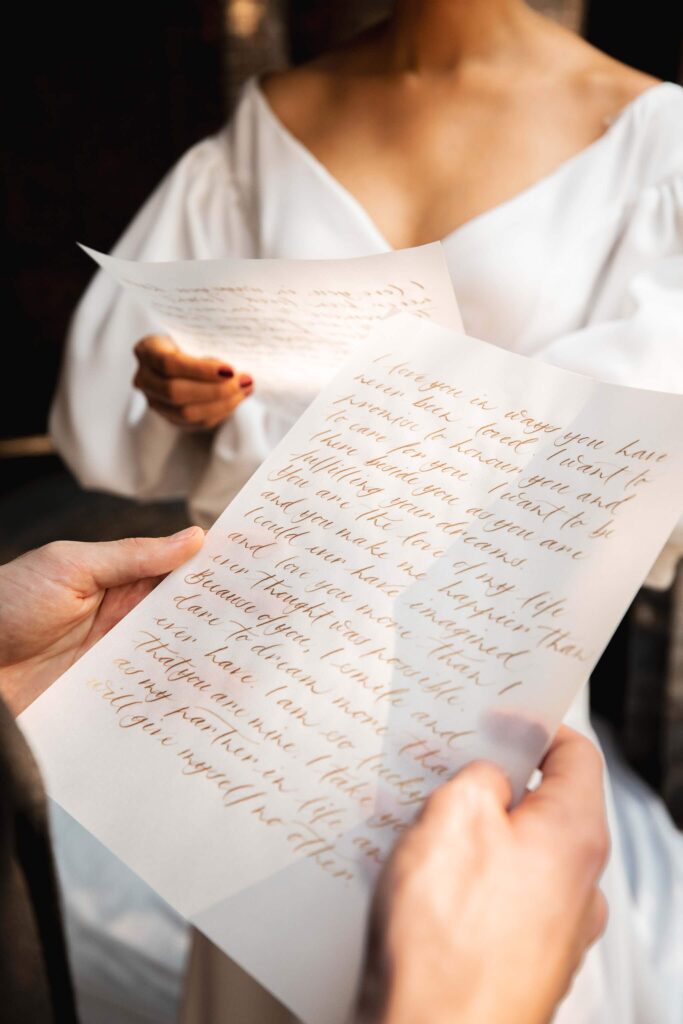 I love you in ways you have
never been loved. I want to
promise to honour you and
to care for you. I want to be
there beside you as you are
fulfilling your dreams.
You are the love of my life
and you make me happier than
I could ever have imagined
and love you more than I
ever thought was possible.
Because of you, I smile and
dare to dream more tha
ever have. I am so lucky
that you are mine. I take yo
as my partner in life, an
will give myself no other.